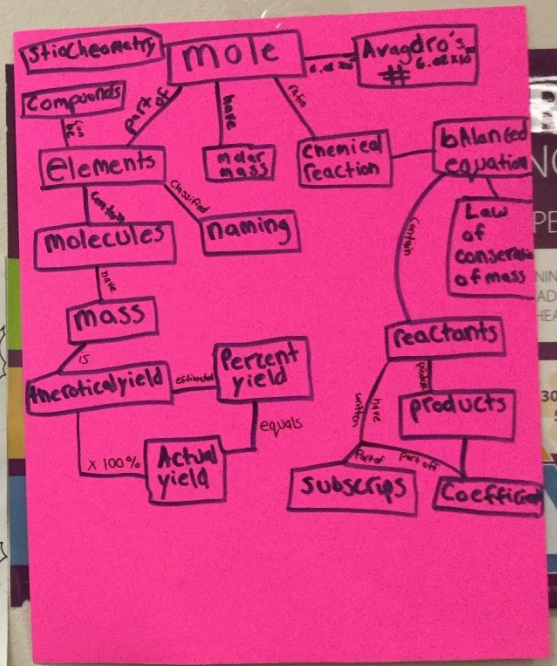 stiocheometry
mole
6.02 x10
Avagdro's
#
6.02 x10
Compounds
part of
have
ratio
elements
molar
mass
Chemical
reaction
bAlanced
equation
Contain
Classified
molecules
naming
Law
of
conseratio
of mass
Contain
have
mass
is
reactants
theroticalyield
estimated
Percent
yield
products
equals
have
written
X 100%
Actual
yield
Part of
Part off
Subscrips
Coefficien
NIN
AD
HEA
30